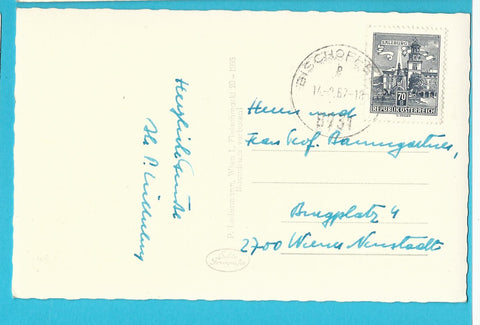 Herzliche Grüße
Ihr P.
P. Ledermann, Wien I, Fleischmarkt 20 – 1955
BISCHOFS
SALZBURG
70
REPUBLIK ÖSTERREICH
Herrn und
Frau Prof. Baumgartner,
Burgplatz 4
2700 Wiener Neustadt